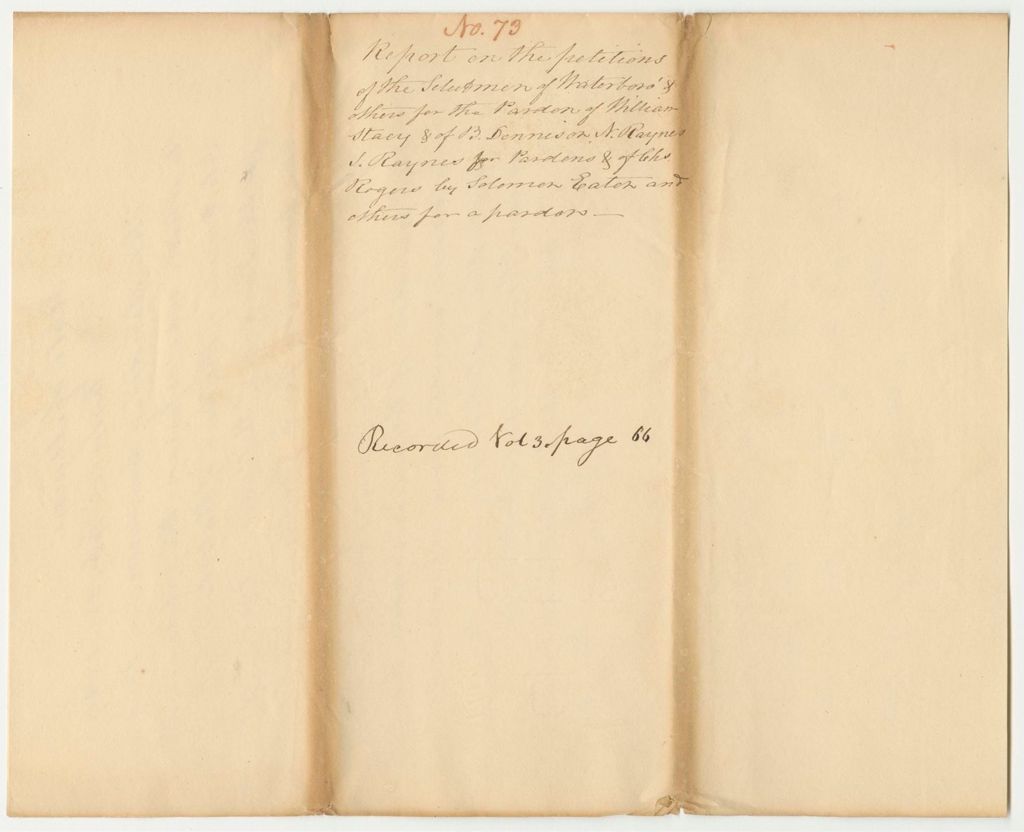 No. 73
Report on the petitions
of the Selectmen of Waterboro' &
others for the Pardon of William
Stacy & of B. Dennison, N. Raynes
J. Raynes for Pardons & of Chs
Rogers by Solomon Eaton and
others for a pardon—
Recorded Vol 3. page 66